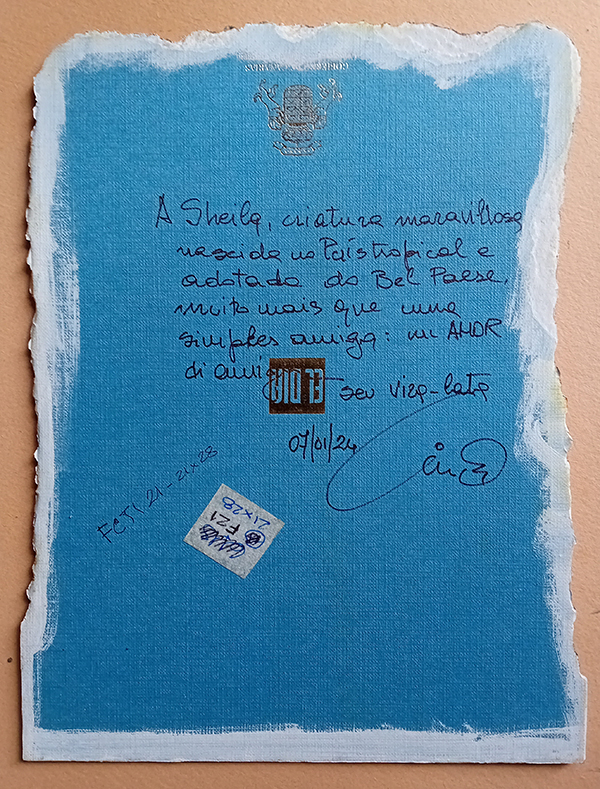 A Sheila, criatura maravilhosa
nascida no País tropical e
adotada do Bel Paese,
muito mais que uma
simples amiga: um AMOR
di
seu vira-lata
07/01/24
FCT1.21-21x28
F21
21x28